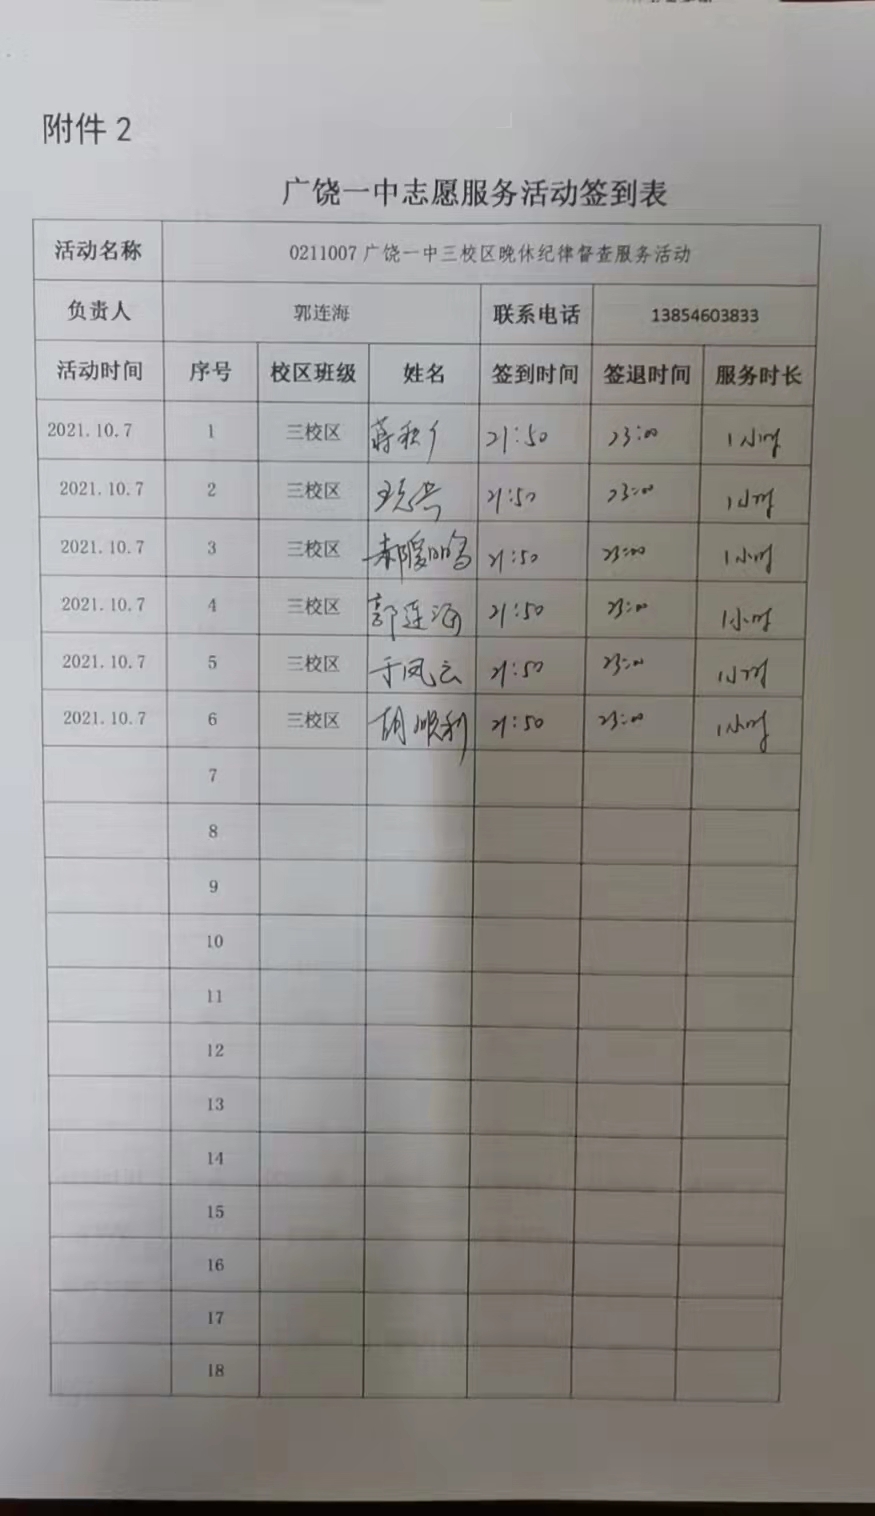 附件 2
广饶一中志愿服务活动签到表
活动名称 0211007 广饶一中三校区晚休纪律督查服务活动
负责人 郭连海 联系电话 13854603833
活动时间 序号 校区班级 姓名 签到时间 签退时间 服务时长
2021.10.7 1 三校区 21:50 23:00 1小时
2021.10.7 2 三校区 21:50 23:00 1小时
2021.10.7 3 三校区 21:50 23:00 1小时
2021.10.7 4 三校区 郭连海 21:50 23:00 1小时
2021.10.7 5 三校区 于凤云 21:50 23:00 1小时
2021.10.7 6 三校区 胡顺利 21:50 23:00 1小时
7
8
9
10
11
12
13
14
15
16
17
18